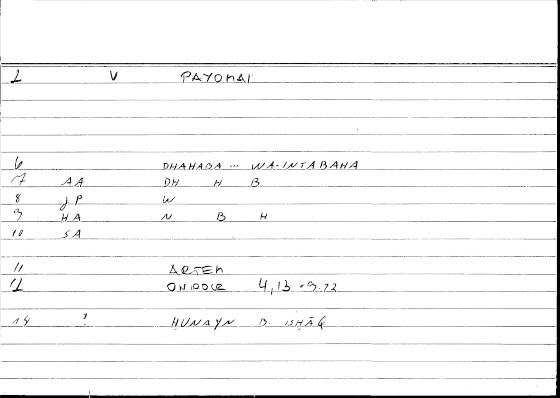 1 V PAYOMAI
6 DHAHABA ... WA-INTABAHA
7 AA DH H B
8 JP W
9 HA N B H
10 SA
11 ARTEM
12 ONIROCR 4,13 9.12
14 ? ḤUNAYN B. ISḤĀQ